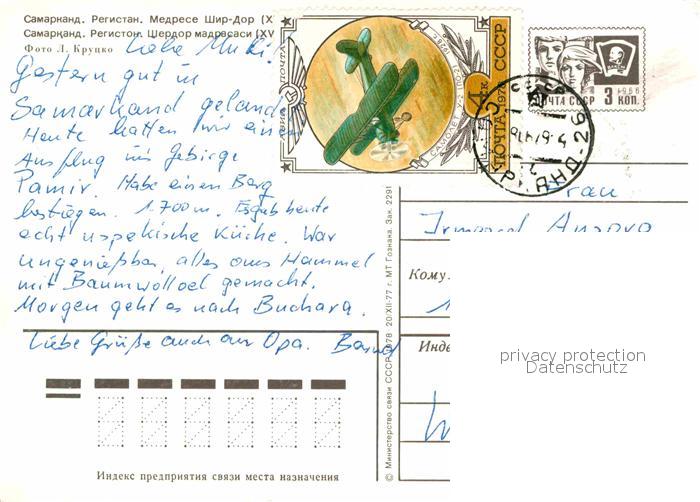 Самарканд. Регистан. Медресе Шир-Дор (X
Самарқанд. Регистон. Шердор мадрасаси (XV
Фото Л. Круцко
Liebe Mutti!
Gestern gut in
Samarkand gelandet
Heute hatten wir einen
Ausflug ins Gebirge
Pamir. Habe einen Berg
bestiegen. 1.700 m. Es gab heute
echt uspekische Küche. War
ungenießbar, alles aus Hammel
mit Baumwolloel gemacht.
Morgen geht es nach Buchara.
Liebe Grüße auch an Opa. Bernd
ПОЧТА
АВИА
САМОЛЕТ У-2
1928г.
4к
ПОЧТА 1978 СССР
1966
ПОЧТА СССР 3 КОП.
СССР
Frau
Irmgard
Кому
Инде
© Министерство связи СССР, 1978. 20/XII-77 г. МТ Гознака. Зак. 2291
privacy protection
Datenschutz
Индекс предприятия связи места назначения